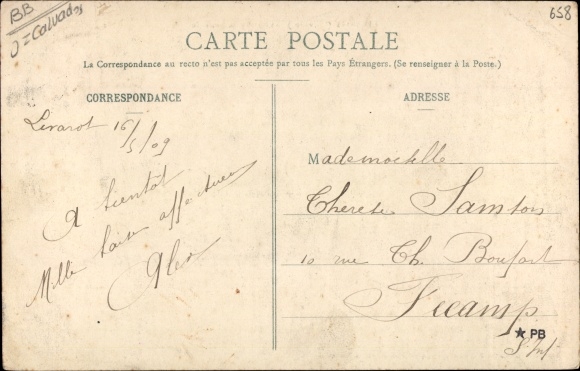 BB
D = Calvados
658
CARTE POSTALE
La Correspondance au recto n'est pas acceptée par tous les Pays Étrangers. (Se renseigner à la Poste.)
CORRESPONDANCE
Levarot 16/5/09
A bientôt
Mille affectueux
Alex
ADRESSE
Mademoiselle
Therese Samson
10 rue Th. Boufart
Fecamp
★ PB
S. Inf.